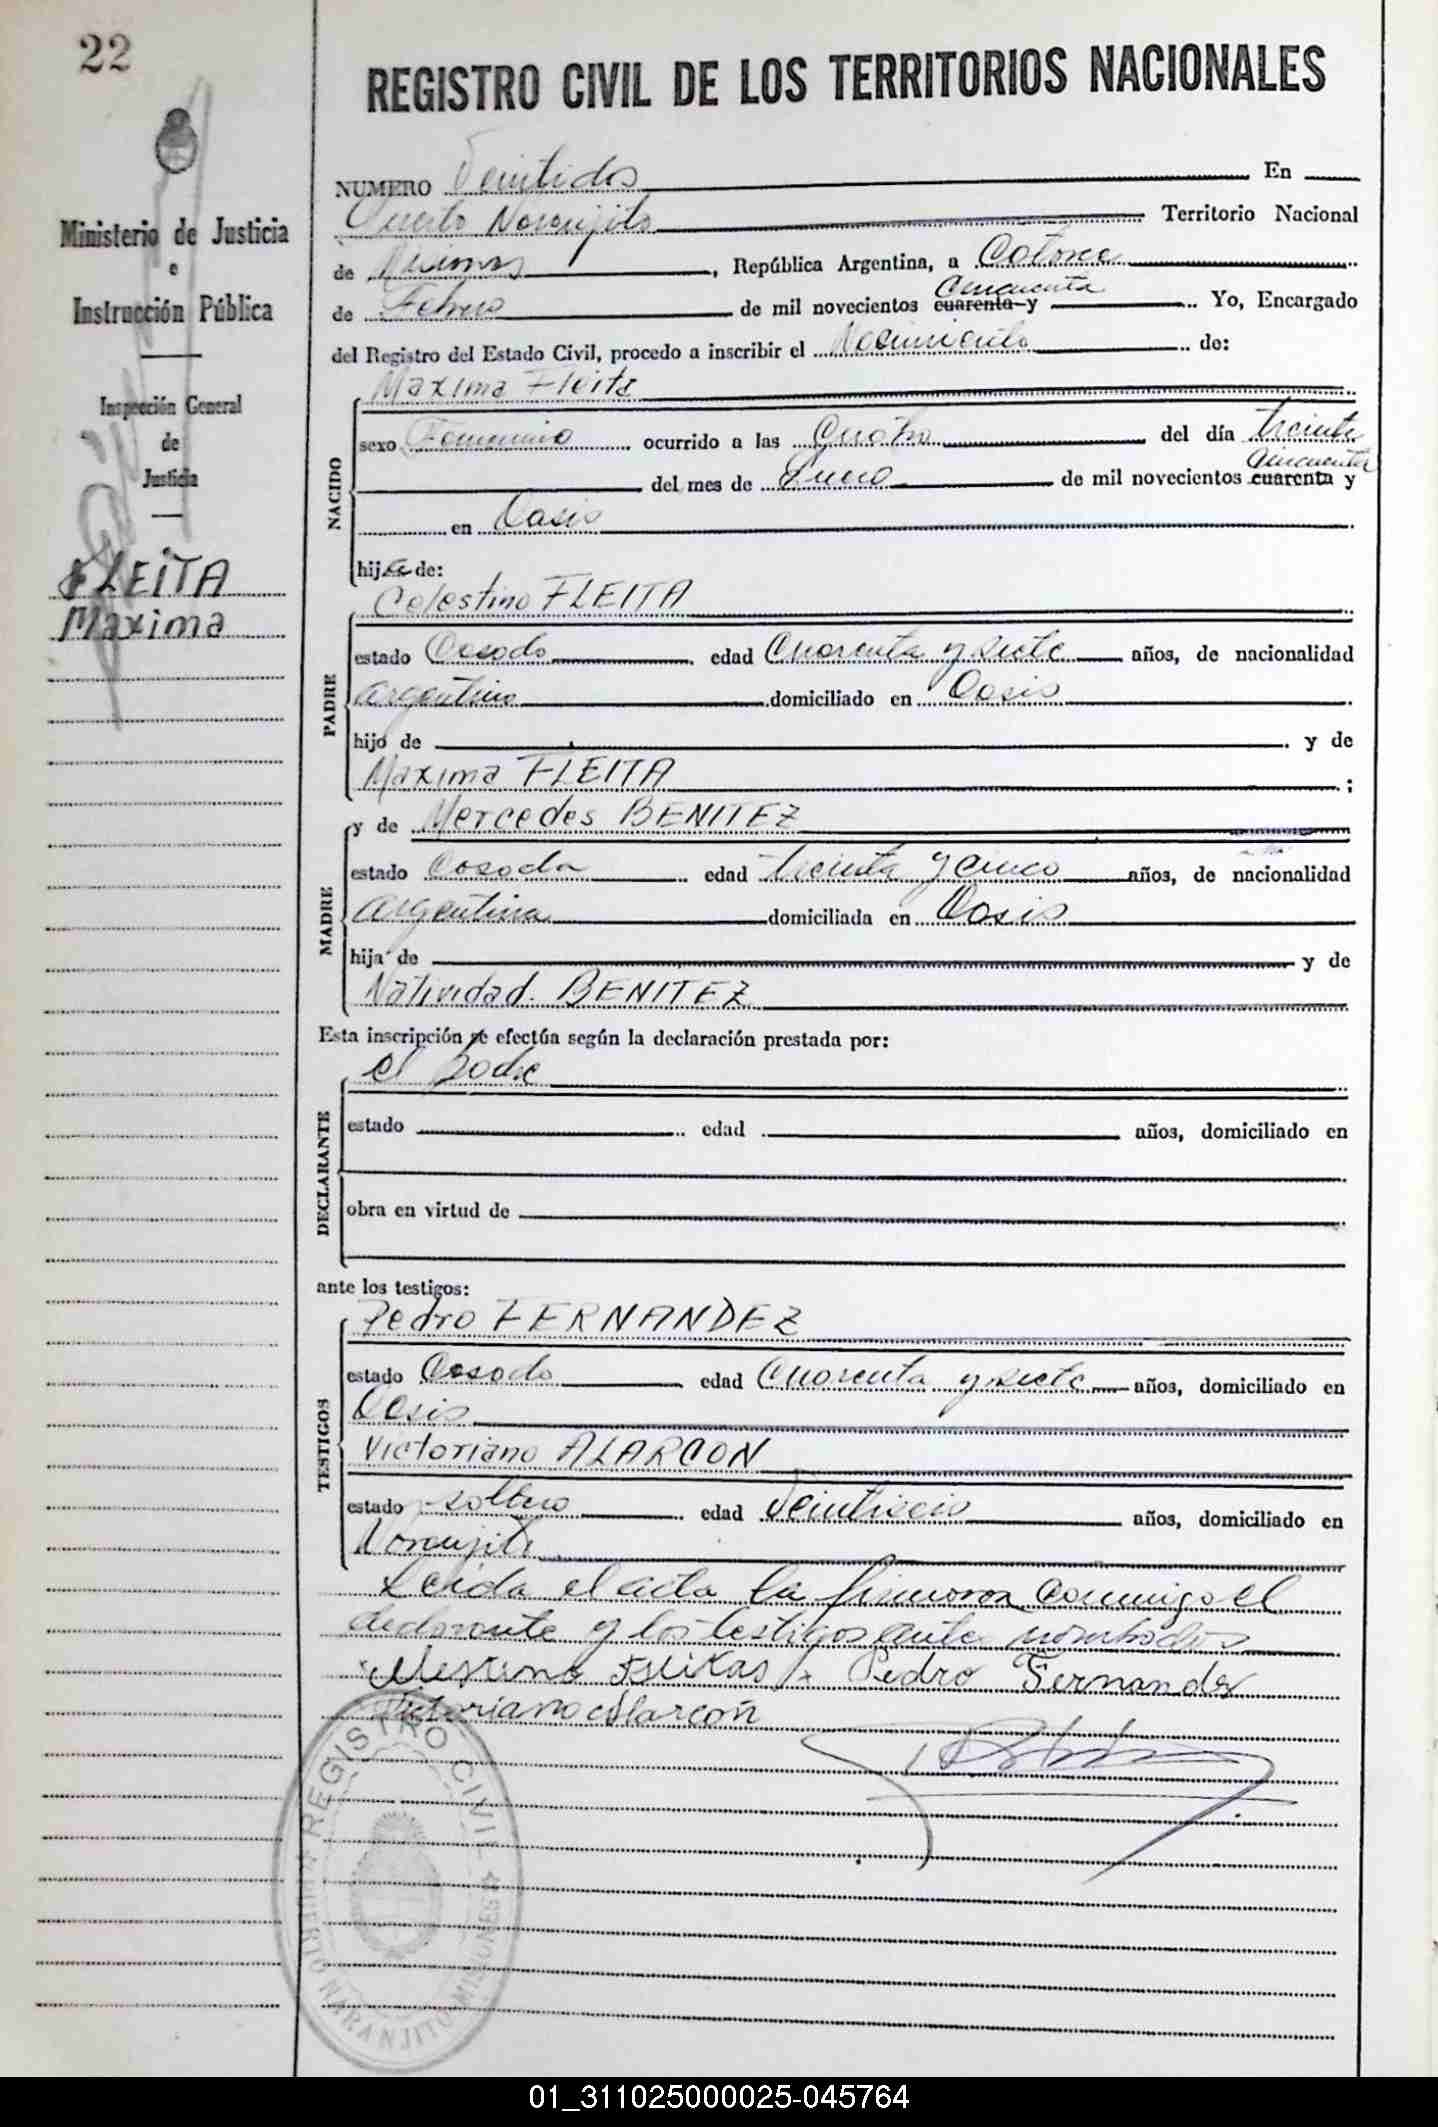 22
REGISTRO CIVIL DE LOS TERRITORIOS NACIONALES
Ministerio de Justicia
e
Instrucción Pública
Inspección General
de
Justicia
FLEITA
Maxima
NUMERO Veintidos En
Puerto Naranjito Territorio Nacional
de Misiones, República Argentina, a Catorce
de Febrero de mil novecientos cuarenta y Cincuenta Yo, Encargado
del Registro del Estado Civil, procedo a inscribir el Nacimiento de:
NACIDO
Maxima Fleita
sexo Femenino ocurrido a las Cuatro del día treinta
del mes de Enero de mil novecientos cuarenta y Cincuenta
en Oasis
hija de:
PADRE
Celestino FLEITA
estado Casado edad Cuarenta y siete años, de nacionalidad
Argentino domiciliado en Oasis
hijo de y de
Maxima FLEITA ;
MADRE
y de Mercedes BENITEZ
estado Casada edad treinta y cinco años, de nacionalidad
Argentina domiciliada en Oasis
hija de y de
Natividad BENITEZ
Esta inscripción se efectúa según la declaración prestada por:
DECLARANTE
el padre
estado edad años, domiciliado en
obra en virtud de
ante los testigos:
TESTIGOS
Pedro FERNANDEZ
estado Casado edad Cuarenta y siete años, domiciliado en
Oasis
Victoriano ALARCON
estado soltero edad Veintiseis años, domiciliado en
Naranjito
Leida el acta la firmaron conmigo el
declarante y los testigos ante nombrados
Pedro Fernandez
Victoriano Alarcoñ
REGISTRO CIVIL
PUERTO NARANJITO MISIONES
01_311025000025-045764